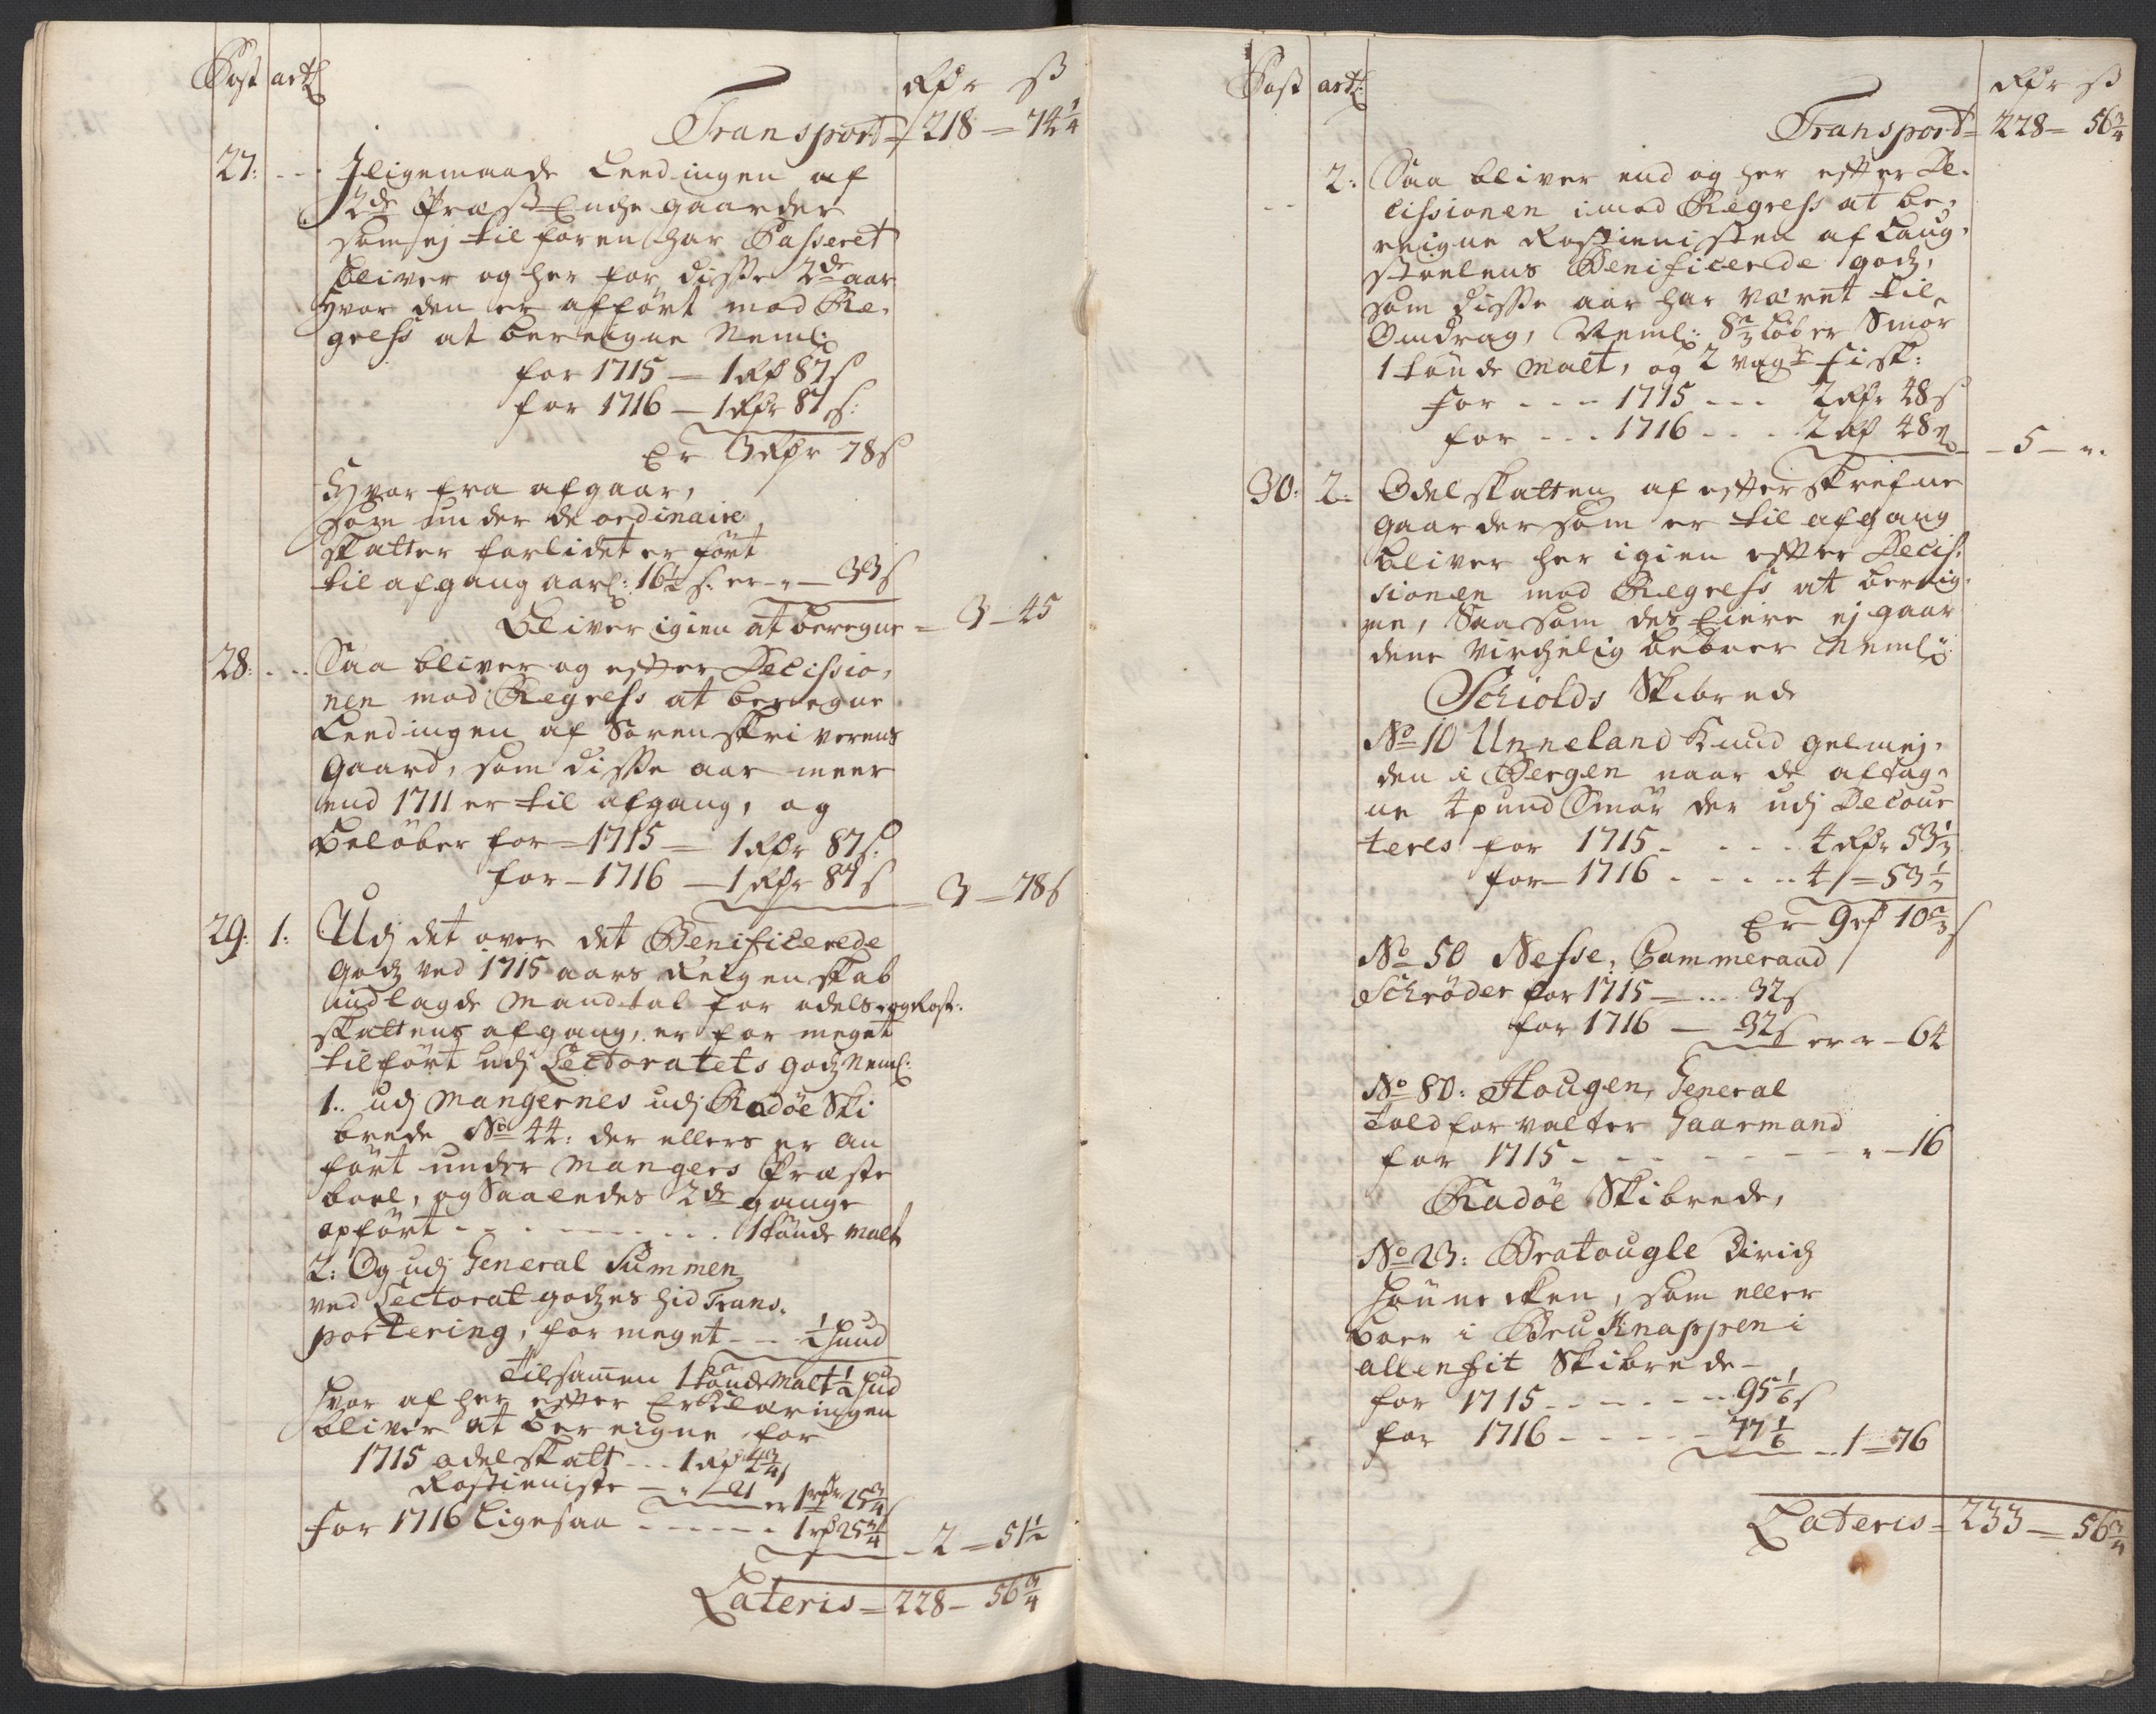 Post artl: Rdr ß
Transport 218 – 74 1/4
27: Jligemaade Leedingen af
2de Præste Enche gaarder
som ej tilforen har Passeret
bliver og her for disse 2de aar
hvor den er afført mod Re-
gress at beregne Neml:
for 1715 – 1 Rd 87 s
for 1716 – 1 Rdr 87 s:
Er 3 Rdr 78 s
Hvor fra afgaar,
som under de ordinaire
skatter forlidet er ført
til afgang aarl: 16 1/2 s. er - „ – 33 s
Bliver igien at beregne – 3 – 45
28: Saa bliver og efter Decissio-
nen mod Regress at beregne
Leedingen af Sorenskriverens
Gaard, som disse aar meer
end 1711 er til afgang, og
Beløber for – 1715 – 1 Rdr 87 s:
for – 1716 – 1 Rdr 87 s – 3 – 78 s
29: 1: Udj det over det Benificerede
Godz ved 1715 aars Regenskab
indlagde Mandtal for odels og Rost:
skattens afgang, er for meget
tilført udj Lectoratets godz Neml:
1.. udj Mangernes udj Radöe Ski
brede No 44: der ellers er an
ført under Mangers Præste
boel, og Saaledes 2de gange
opført - - - 1 tønde Malt
2: Og udj General Summen
ved Lectorat godzes hid Trans-
portering, for meget - - 1/2 Huud
Tilsamen 1 tønde Malt 1/2 hud
Hvor af her efter Erklæringen
bliver at bereigne for
1715 odelskatt - - 1 Rd 4 3/4 s
Rostieniste – „ – 21 er 1 rdr 25 3/4
for 1716 Ligesaa - - - 1 rd 25 3/4 – 2 – 51 1/2
Lateris – 228 – 56 3/4
Post artl: Rdr ß
Transport – 228 – 56 3/4
2: Saa bliver end og her efter De-
cissionen imod Regress at be-
reigne Rostienisten af Laug-
stoelens Benificerede godz,
som disse aar har været til
Omdrag, Neml: 8 2/3 Løber Smør
1 tønde Malt, og 2 vager fisk:
for - - - 1715 - - - 2 Rdr 48 s
for - - - 1716 - - - 2 Rd 48 s – 5 – „
30: 2: Odelskatten af efterskrefne
Gaarder som er til afgang
bliver her igien efter Decis-
sionen mod Regress at bereig-
ne, Saasom des Eiere ej gaar
dene virchelig beboer Neml:
Schiolds Skibrede
No 10 Unneland Knud Gelmej-
den i Bergen naar de aftag-
ne 4 pund Smør der udj Decour
teres for 1715 - - - 4 Rdr 53 1/3
for – 1716 - - - 4 – 53 1/3
Er 9 rd 10 2/3 s
No 50 Nesse, Cammeraad
Schrøder for 1715 – 32 s
for 1716 – 32 s er „ – 64
No 80: Hougen, General
Toldforvalter Gaarmand
for 1715 - - - „ – 16
Radöe Skibrede,
No 23: Bratougle Dirich
, som eller
boer i Bru Knappen i
allenfit Skibrede –
for 1715 - - - 95 1/6 s
for 1716 - - - 77 1/6 – 1 – 76
Lateris – 233 – 56 3/4